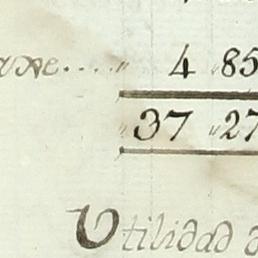 axe.... " 4 " 85
" 37 " 27
Utilidad d